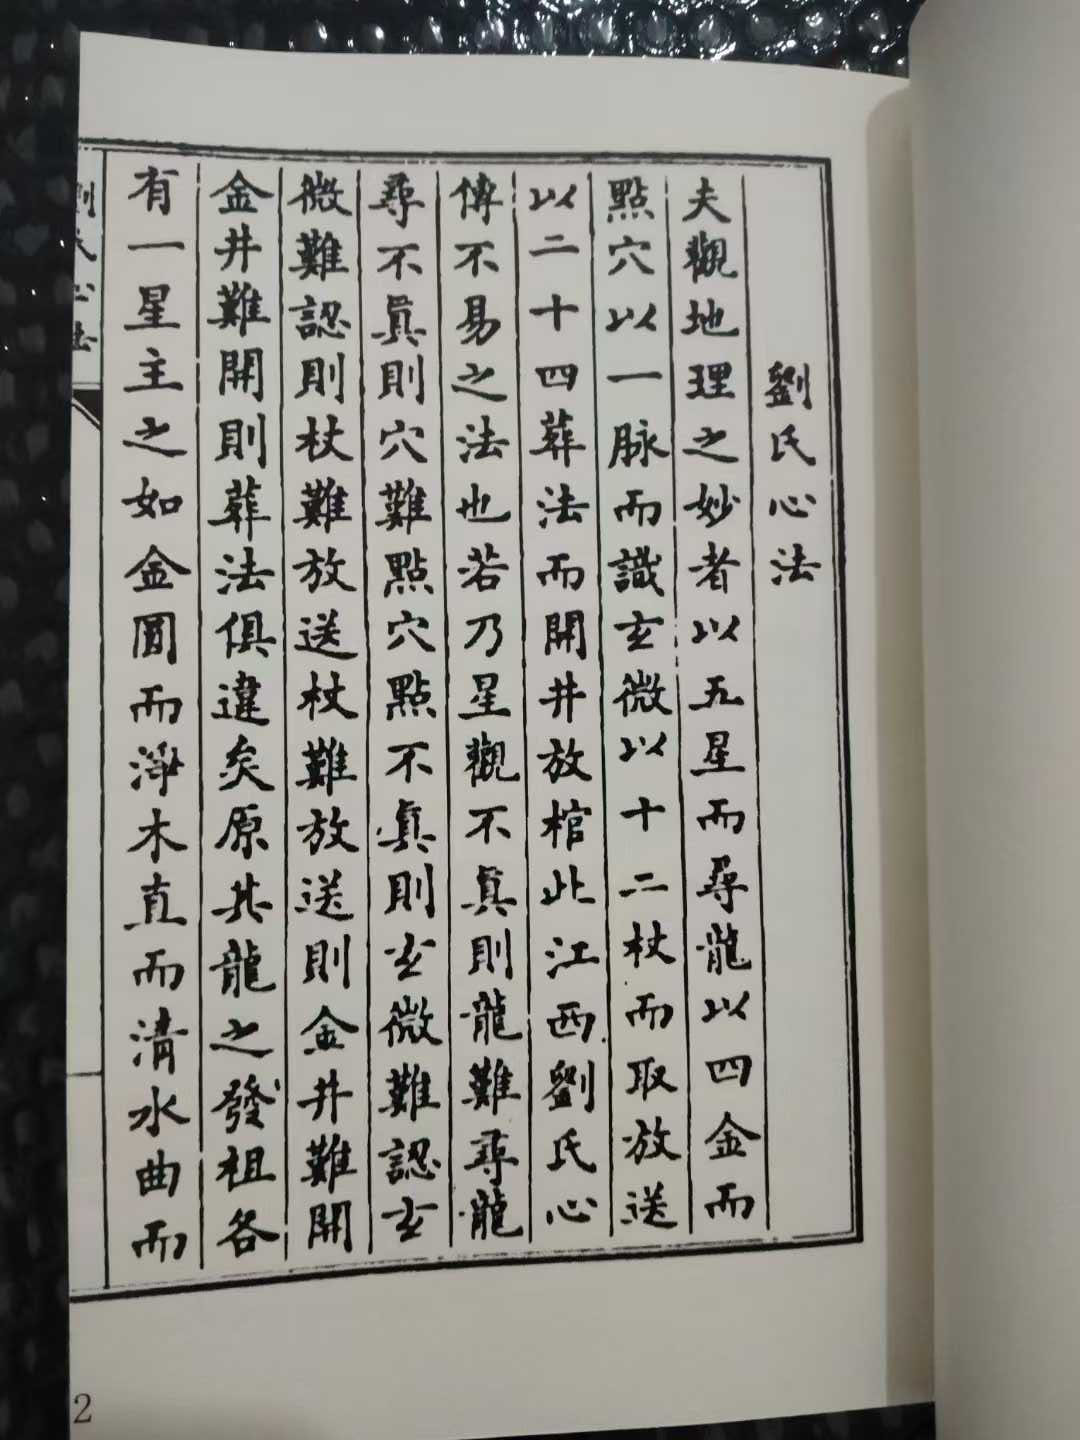 劉氏心法
夫觀地理之妙者以五星而尋龍以四金而
點穴以一脉而識玄微以十二杖而取放送
以二十四葬法而開井放棺此江西劉氏心
傳不易之法也若乃星觀不真則龍難尋龍
尋不真則穴難點穴點不真則玄微難認玄
微難認則杖難放送杖難放送則金井難開
金井難開則葬法俱違矣原其龍之發祖各
有一星主之如金圓而淨木直而清水曲而
劉氏心法
2